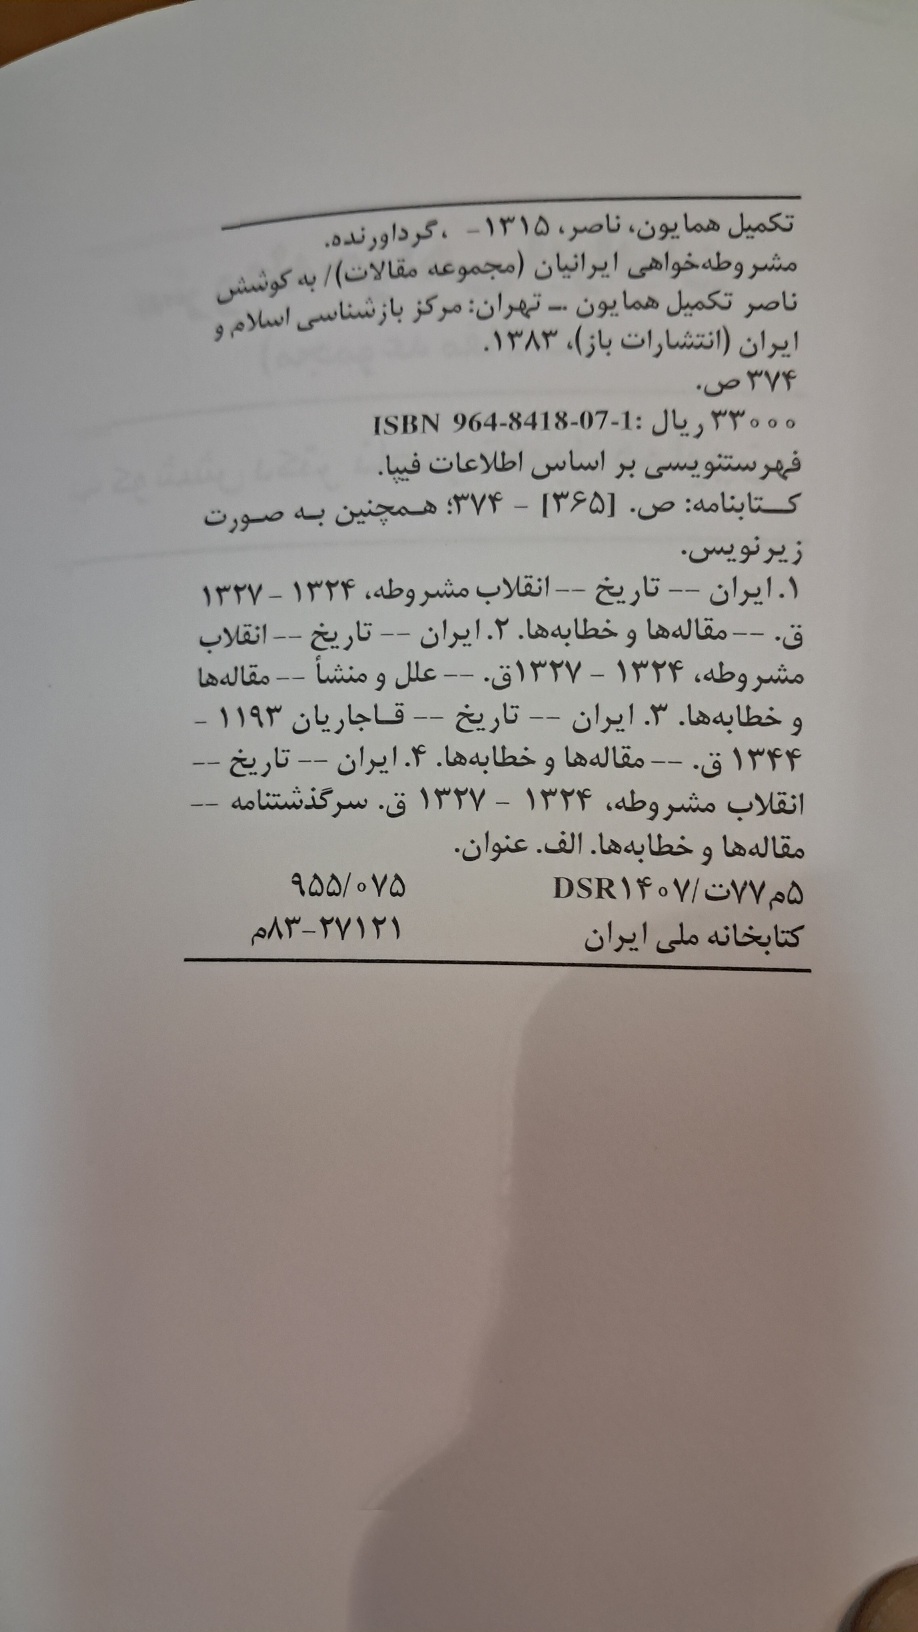 تکمیل همایون، ناصر، ۱۳۱۵- ، گرداورنده.
مشروطه‌خواهی ایرانیان (مجموعه مقالات)/ به کوشش
ناصر تکمیل همایون ــ تهران: مرکز بازشناسی اسلام و
ایران (انتشارات باز)، ۱۳۸۳.
۳۷۴ ص.
۳۳۰۰۰ ریال :ISBN 964-8418-07-1
فهرستنویسی بر اساس اطلاعات فیپا.
کتابنامه: ص. [۳۶۵] - ۳۷۴؛ همچنین به صورت
زیرنویس.
۱. ایران -- تاریخ -- انقلاب مشروطه، ۱۳۲۴ - ۱۳۲۷
ق. -- مقاله‌ها و خطابه‌ها. ۲. ایران -- تاریخ -- انقلاب
مشروطه، ۱۳۲۴ - ۱۳۲۷ق. -- علل و منشأ -- مقاله‌ها
و خطابه‌ها. ۳. ایران -- تاریخ -- قاجاریان ۱۱۹۳ -
۱۳۴۴ ق. -- مقاله‌ها و خطابه‌ها. ۴. ایران -- تاریخ --
انقلاب مشروطه، ۱۳۲۴ - ۱۳۲۷ ق. سرگذشتنامه --
مقاله‌ها و خطابه‌ها. الف. عنوان.
۵م۷۷ت/DSR۱۴۰۷ ۹۵۵/۰۷۵
کتابخانه ملی ایران ۸۳-۲۷۱۲۱م